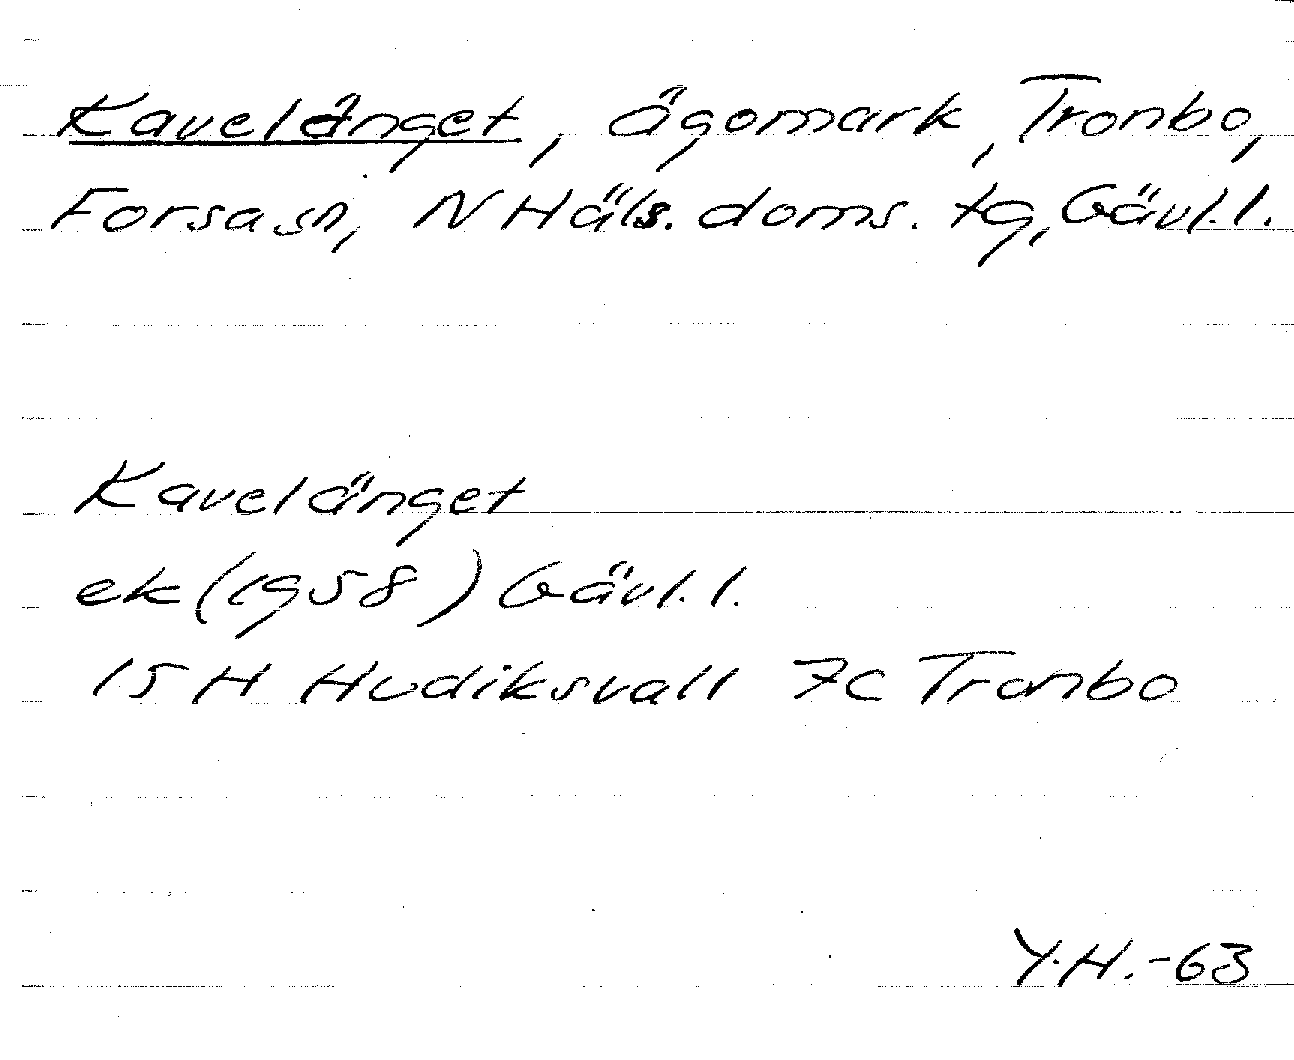 Kavelänget, ägomark, Tronbo,
Forsa sn, N Häls. doms. tg, Gävl.l.
Kavelänget
ek (1958) Gävl.l.
15 H Hudiksvall 7c Tronbo
Y.H.-63